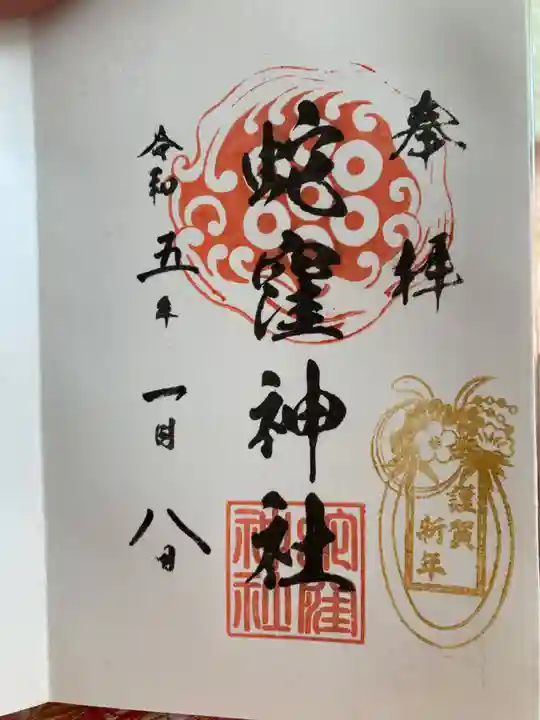 奉拝
蛇窪神社
蛇窪神社
令和五年一月八日
謹賀
新年